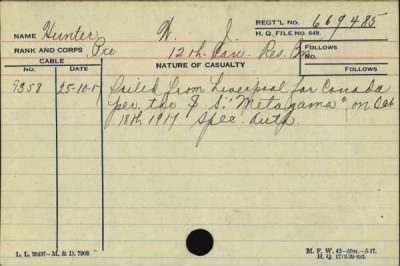 REGT'L NO. 669485
H. Q. FILE NO. 649.
NAME Hunter, W. J.
RANK AND CORPS Pte 12th. Can. Res. Bn.
FOLLOWS
CABLE
NO. DATE NATURE OF CASUALTY
NO.
FOLLOWS
9358 25-10-17 Sailed from Liverpool for Canada
per. the S. S. "Metagama" on Oct
18th 1917 Spec. duty.
L. L. M. & D. 7993
M. F. W. 42
H. Q. 1772-39-893.